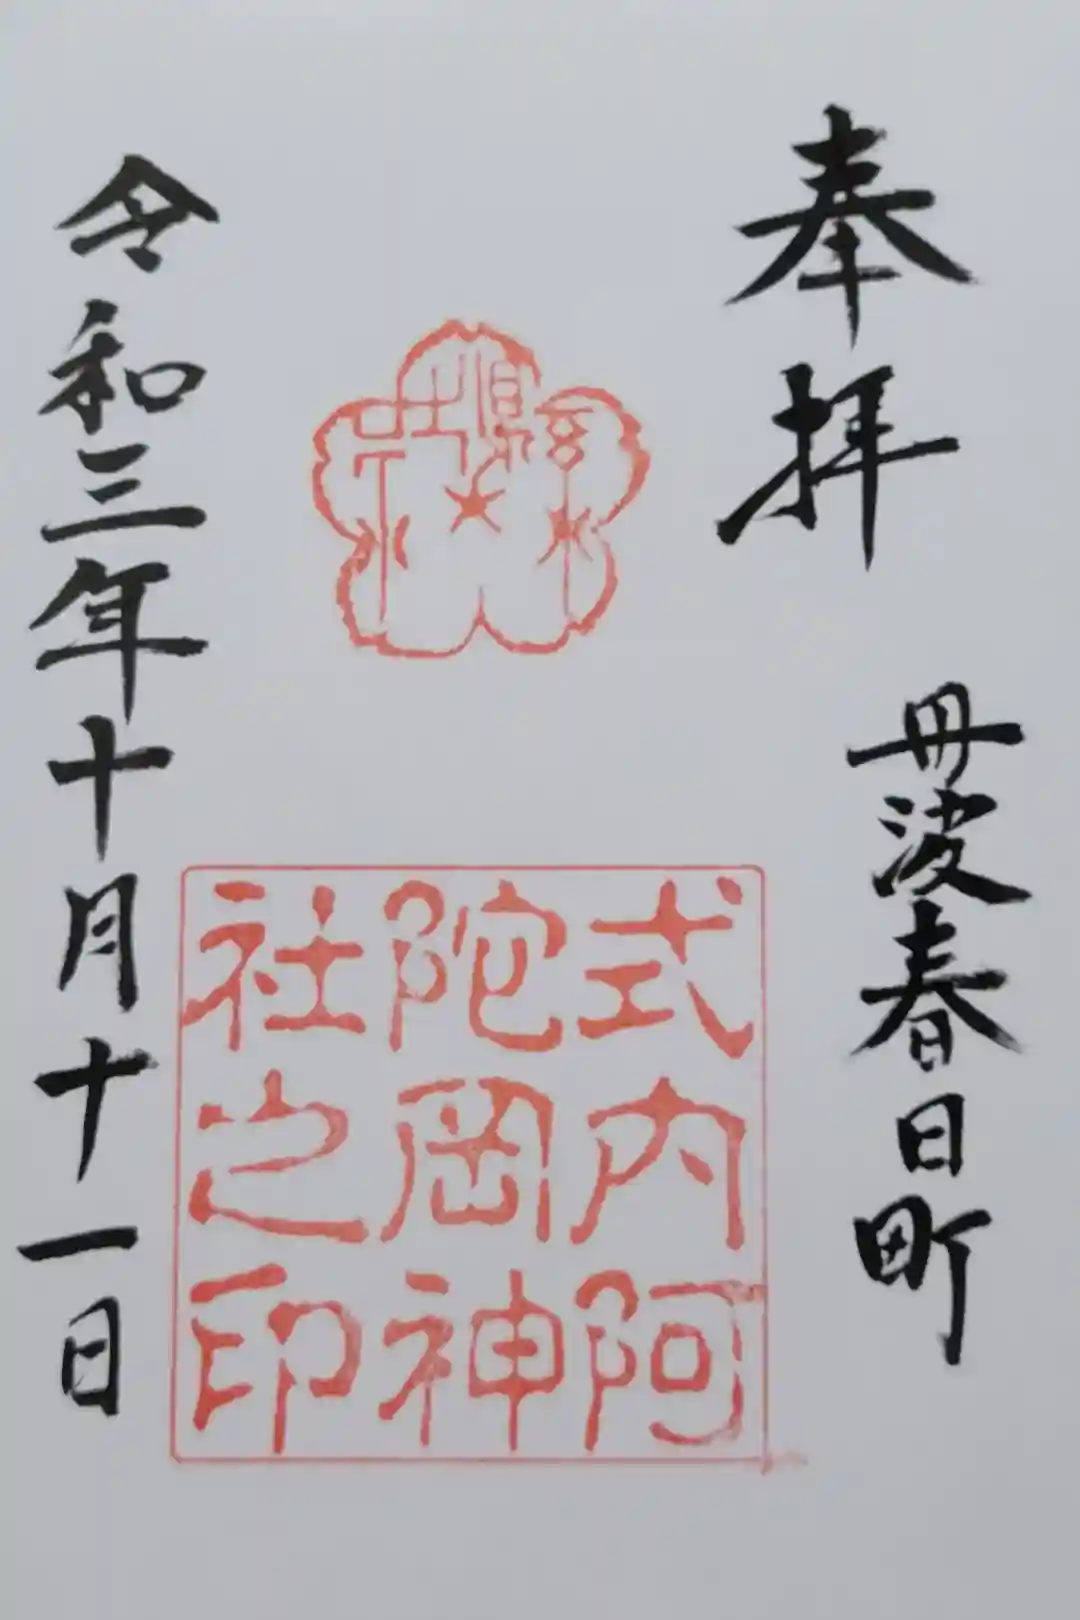 奉拝
丹波春日町
縣社
式内阿
陀岡神
社之印
令和三年十月十一日